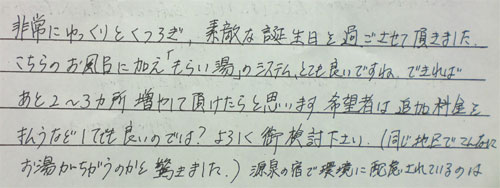 非常にゆっくりとくつろぎ、素敵な誕生日を過ごさせて頂きました。
こちらのお風呂に加え「もらい湯」のシステム、とても良いですね。できれば
あと2〜3カ所増やして頂けたらと思います。希望者は追加料金を
払うなどしても良いのでは?よろしく御検討下さい。(同じ地区でこんなに
お湯がちがうのかと驚きました。)源泉の宿で環境に配慮されているのは